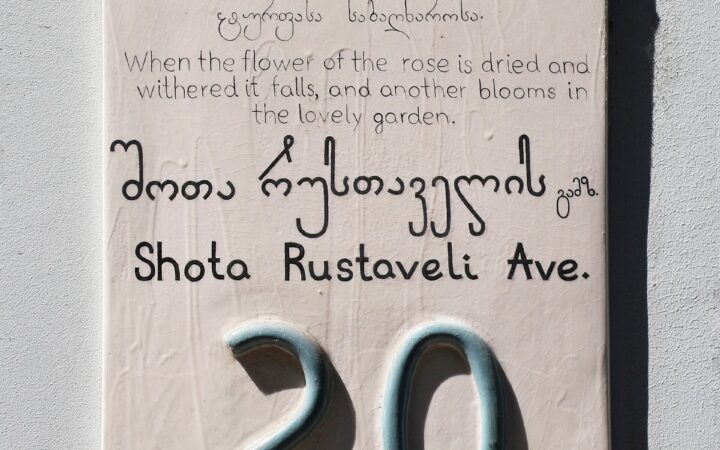 ტურფასა საბაღნაროსა.
When the flower of the rose is dried and
withered it falls, and another blooms in
the lovely garden.
შოთა რუსთაველის გამზ.
Shota Rustaveli Ave.
20